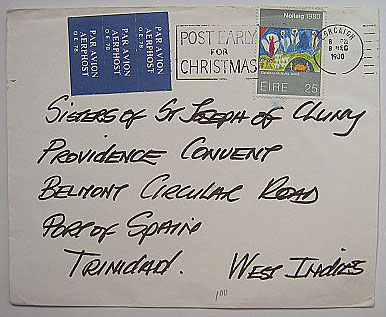 PAR AVION
AERPHOST
O.E. 76
PAR AVION
AERPHOST
O.E. 76
PAR AVION
AERPHOST
O.E. 76
POST EARLY
FOR
CHRISTMAS
Nollaig 1980
ÉIRE 25
CORCAIGH
8 DEC
1980
Sisters of St Joseph of Cluny
Providence Convent
Belmont Circular Road
Port of Spain
Trinidad. West Indies
100